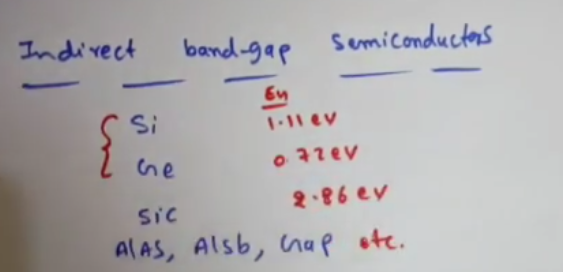 Indirect band-gap semiconductors
Eg
Si 1.11 eV
Ge 0.72 eV
SiC 2.86 eV
AlAS, Alsb, Gap etc.